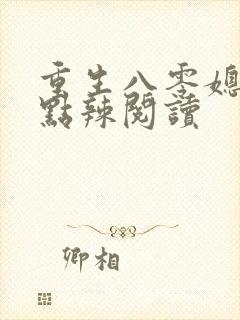 重生八零媳
點辣閱讀
卿相